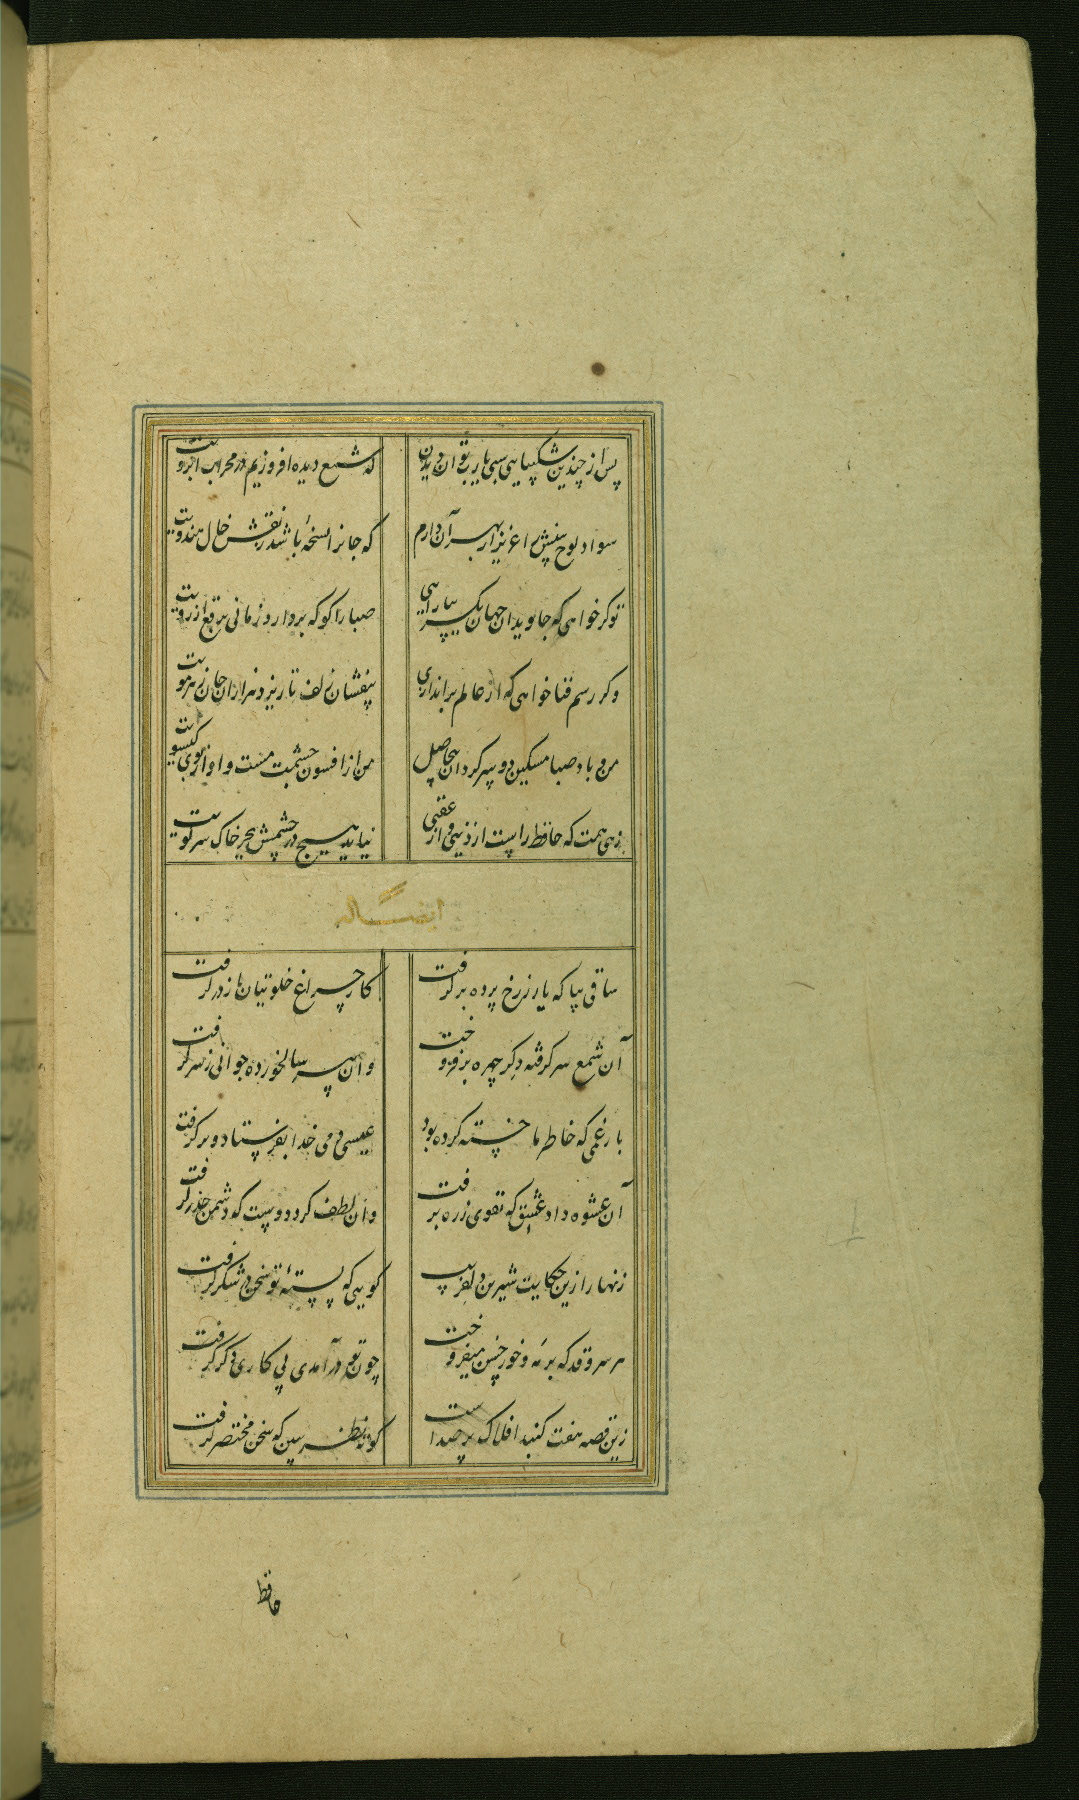 پس از چندین شکیبایی شبی یارب توان دیدن
که شمع دیده افروزیم در محراب ابرویت
سواد لوح بینش را عزیز از بهر آن دارم
که جانرا نسخهٔ باشد ز نقش خال هندویت
تو کر خواهی که جاویدان جهان یکسر بیارایی
صبا را کو که بردارد زمانی برقع از رویت
وکر رسم فنا خواهی که از عالم براندازی
بیفشان زلف تا ریزد هزاران جان ز هر مویت
من و باد صبا مسکین دو سرکردان بیحاصل
من از افسون چشمت مست و او از بوی کیسویت
زهی همت که حافظ راست از دنیی و از عقبی
نیاید هیچ در چشمش بجز خاک سر کویت
ایضاً له
ساقی بیا که یار ز رخ پرده بر کرفت
کار چراغ خلوتیان باز در کرفت
آن شمع سر کرفته دکر چهره بر فروخت
وان پیر سالخورده جوانی ز سر کرفت
بار غمی که خاطر ما خسته کرده بود
عیسی دمی خدا بفرستاد و بر کرفت
آن عشوه داد عشق که تقوی ز ره برفت
وان لطف کرد دوست که دشمن حذر کرفت
زنهار ازین حکایت شیرین دلفریب
کویی که پستهٔ تو سخن در شکر کرفت
هر سرو قد که بر مه و خور حسن میفروخت
چون تو در آمدی پی کاری دکر کرفت
زین قصه هفت کنبد افلاک پر صداست
کوته نظر ببین که سخن مختصر کرفت
حافظ